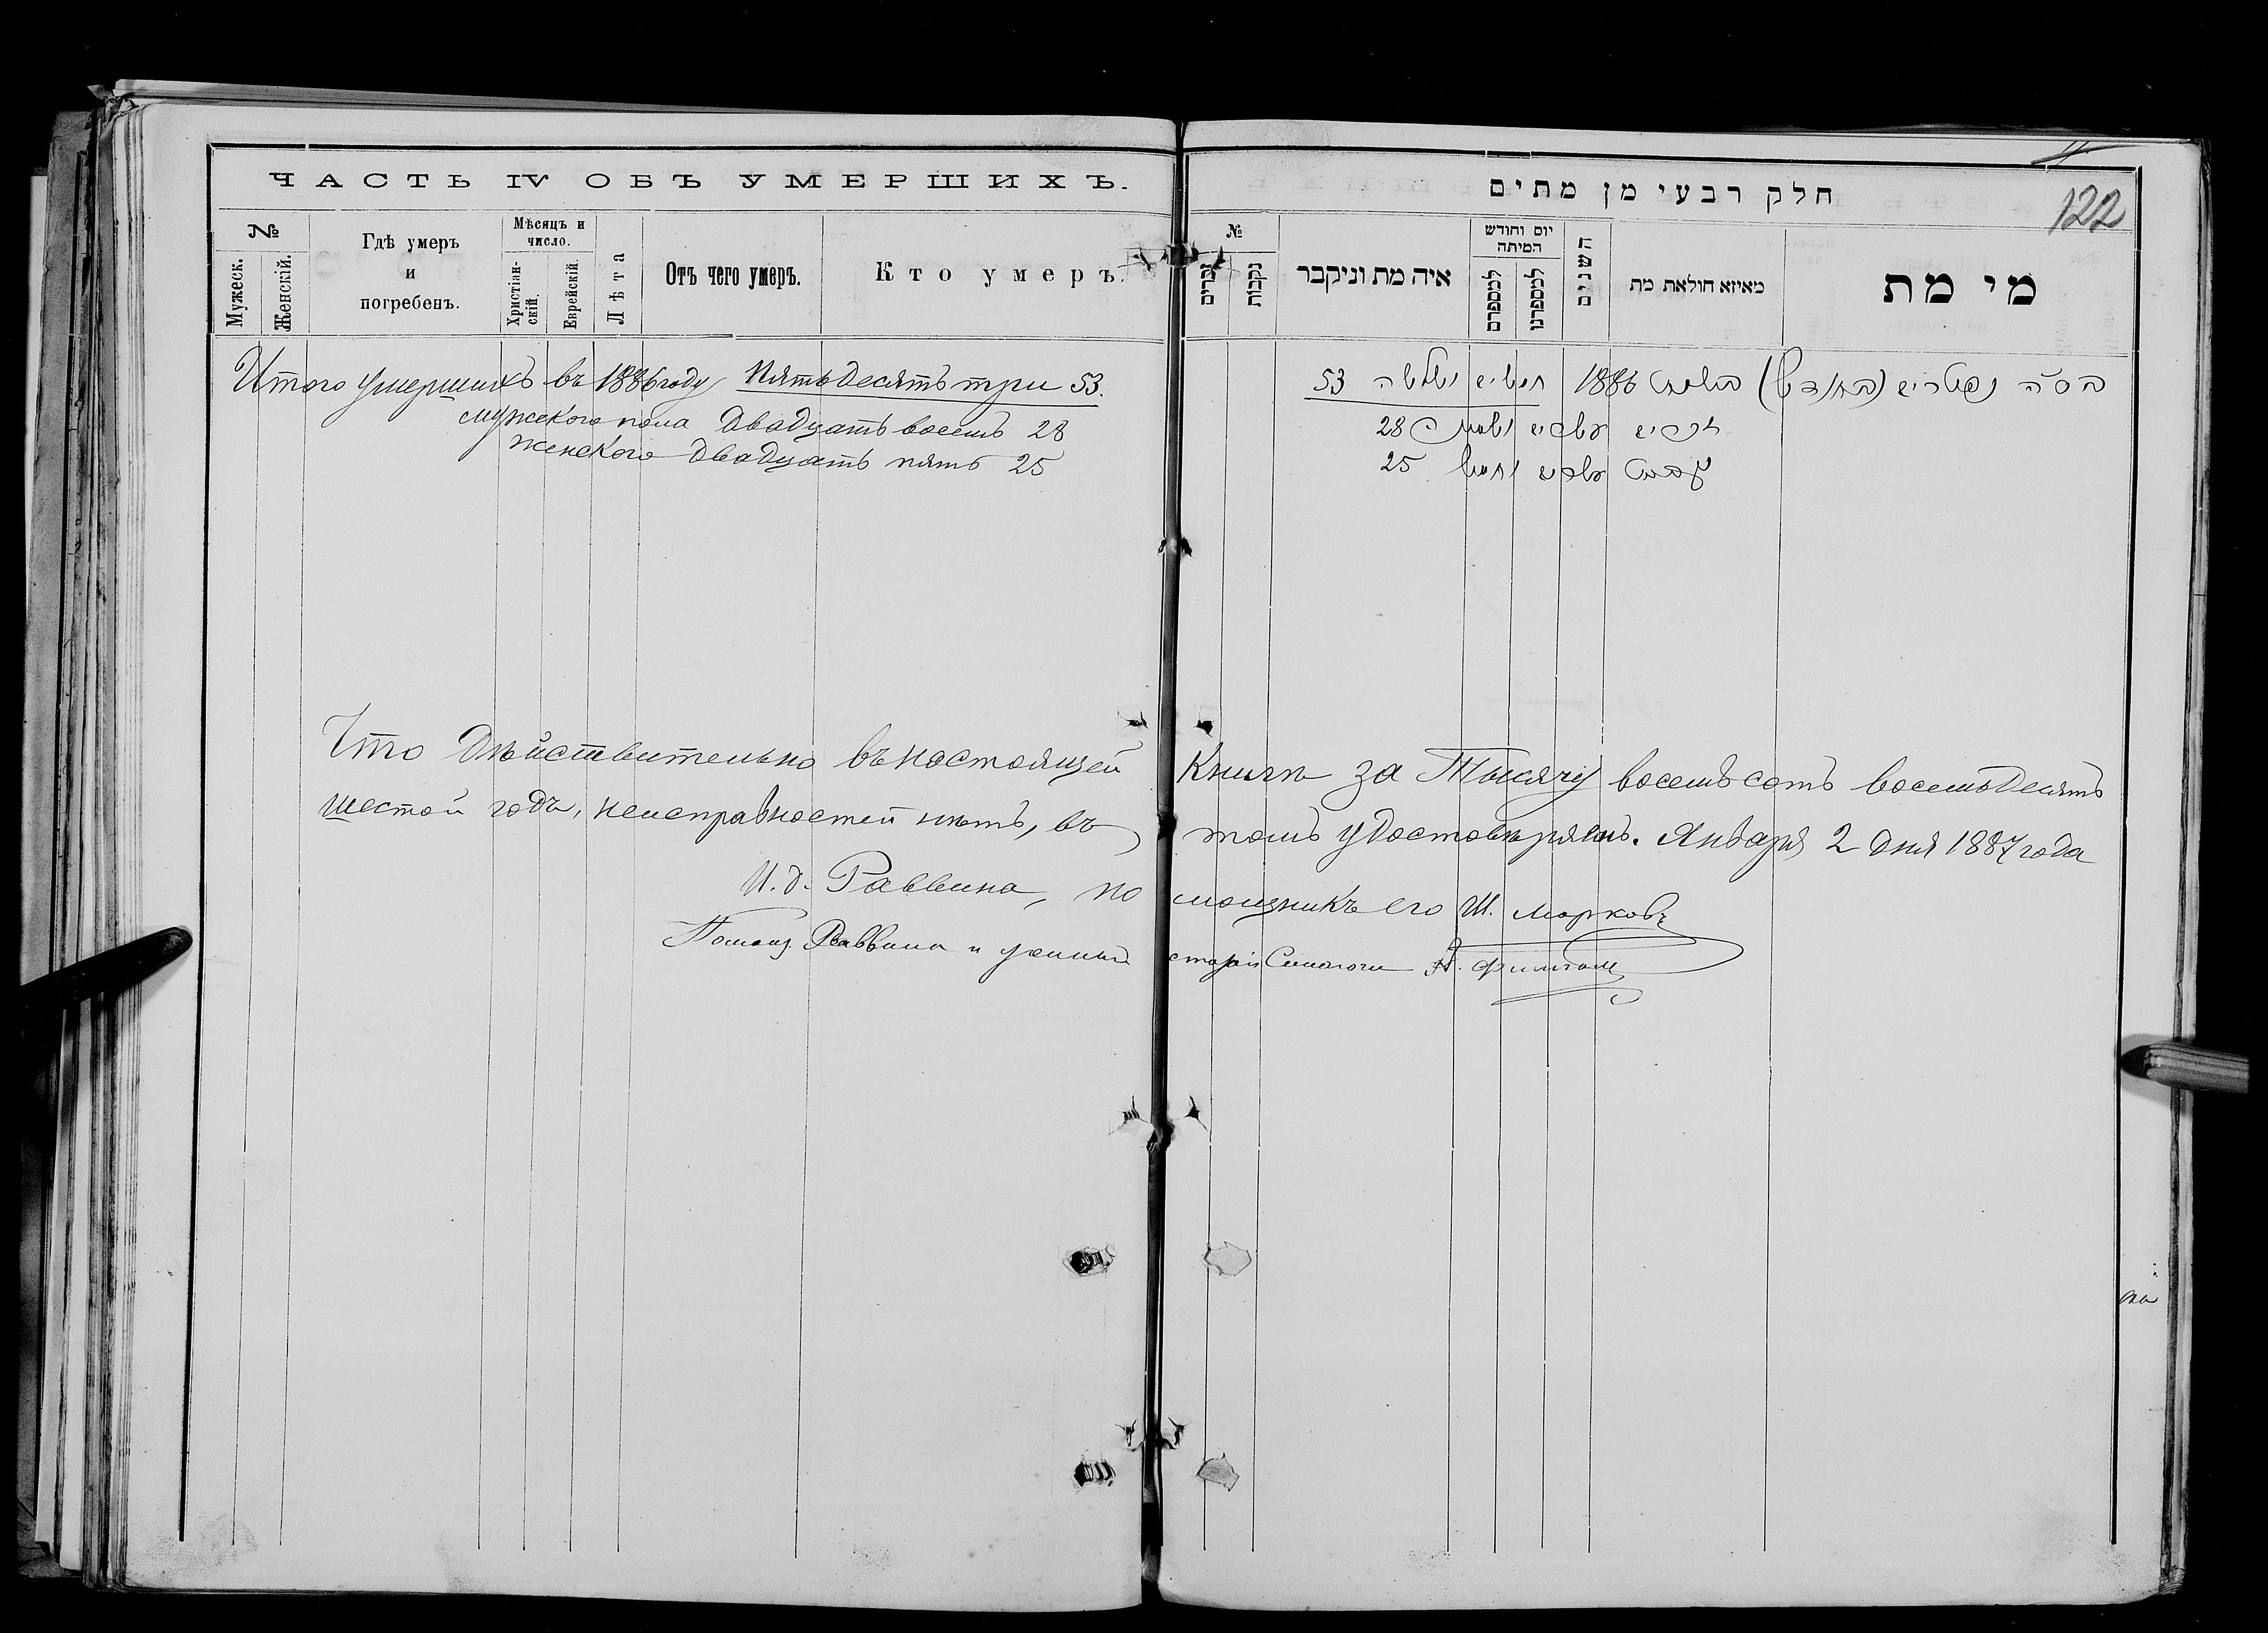 ЧАСТЬ IV ОБЪ УМЕРШИХЪ.
№
Мужеск.
Женскій.
Гдѣ умеръ
и
погребенъ.
Мѣсяцъ и
число.
Христіан-
скій.
Еврейскій.
Лѣта
Отъ чего умеръ.
Кто умеръ.
Итого умершихъ въ 1886 году Пятьдесятъ три 53.
мужского пола Двадцать восемь 28
женского двадцать пять 25
חלק רבעי מן מתים
122
№
זכרים
נקבות
איה מת וניקבר
יום וחודש
המיתה
למספרם
למספרנו
השנים
מאיזא חולאת מת
מי מת
בס״ה נפטרים 1886 חמשים ושלשה 53
זכרים עשרים ושמנה 28
נקבות עשרים וחמש 25
Что Дѣйствительно въ настоящей Книгѣ за Тысячу восемьсотъ восемьдесятъ
шестой годъ, неисправностей нѣтъ, въ томъ удостовѣряемъ. Января 2 дня 1887 года
И. д. Раввина, помощникъ его Ш. Марковъ
Помощ. Раввина и ученый